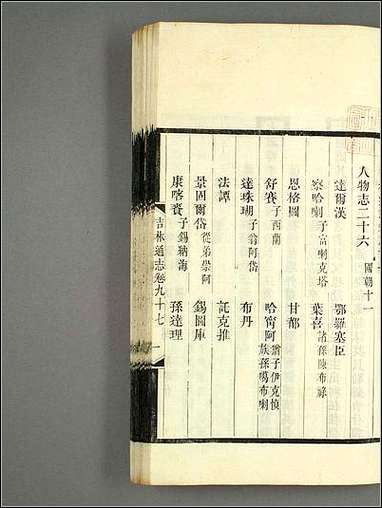 人物志二十六 國朝十一
達爾漢 鄂羅塞臣
察哈喇 子富喇克塔 葉喜 諸孫陳布祿
恩格圖 甘都
舒賽 子西蘭 哈甯阿
達珠瑚 子翁阿岱 布丹
法譚 託克推
景固爾岱 從弟崇阿 錫圖庫
康喀賚 子錫納海 孫達理
吉林通志卷九十七 一